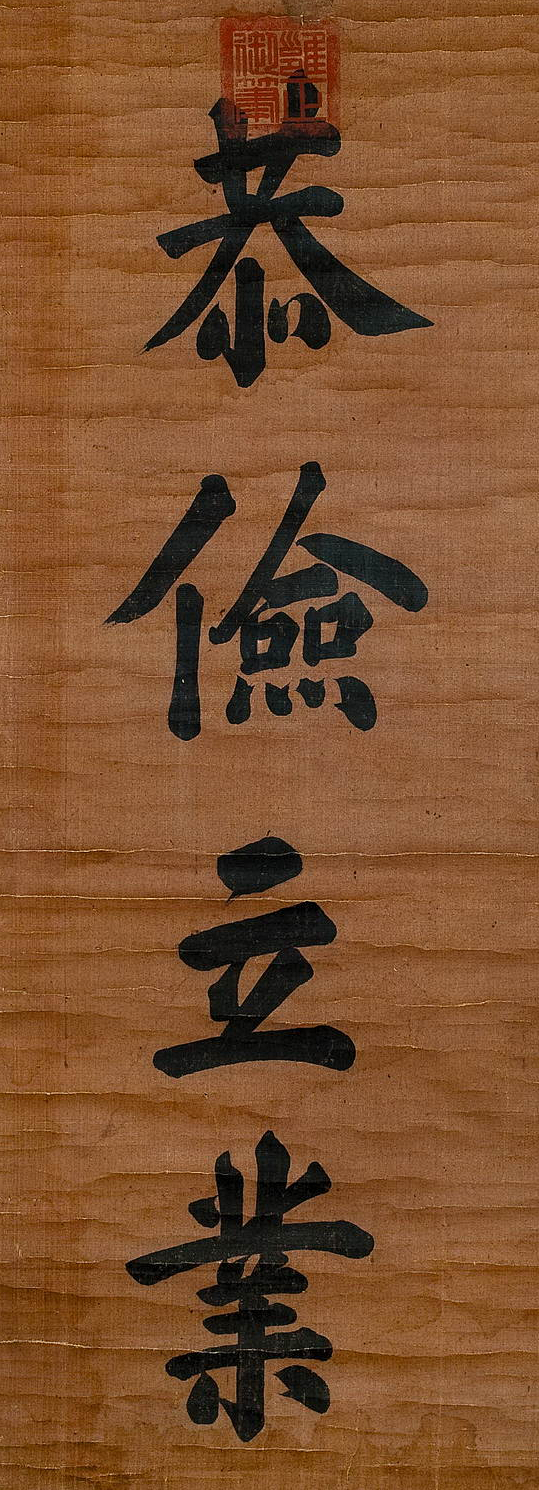 恭儉立業
雍正
御筆